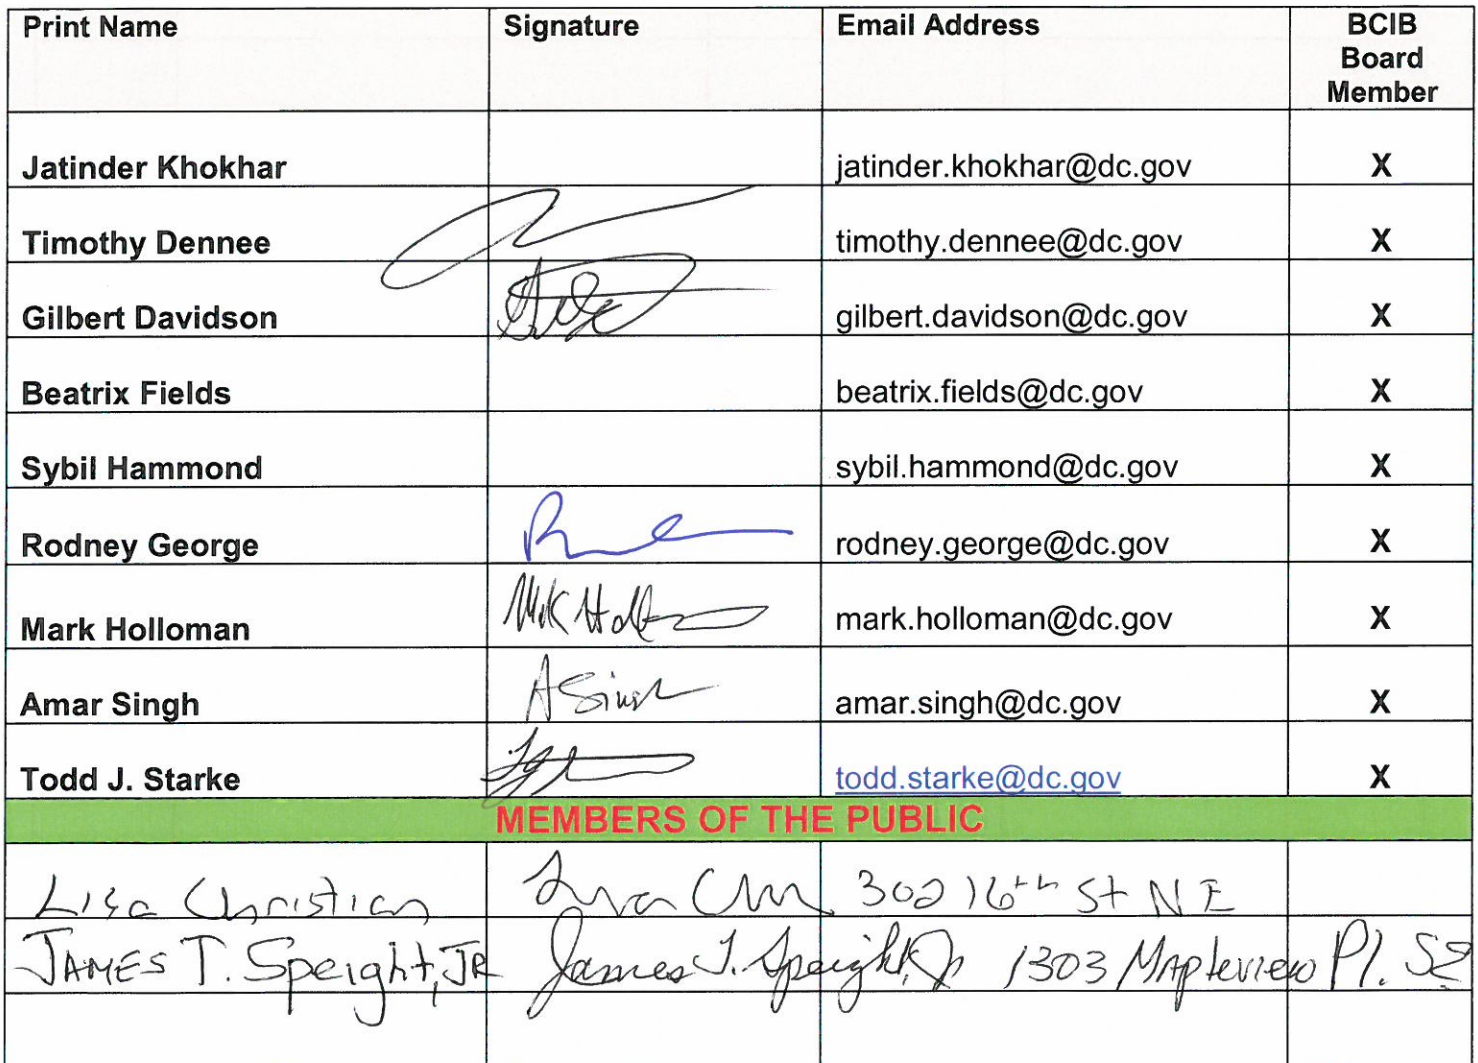 Print Name Signature Email Address BCIB
Board
Member
Jatinder Khokhar jatinder.khokhar@dc.gov X
Timothy Dennee timothy.dennee@dc.gov X
Gilbert Davidson gilbert.davidson@dc.gov X
Beatrix Fields beatrix.fields@dc.gov X
Sybil Hammond sybil.hammond@dc.gov X
Rodney George rodney.george@dc.gov X
Mark Holloman mark.holloman@dc.gov X
Amar Singh ASingh amar.singh@dc.gov X
Todd J. Starke todd.starke@dc.gov X
MEMBERS OF THE PUBLIC
Lisa Christian 302 16th St NE
JAMES T. Speight, JR James T. Speight, Jr 1303 Mapleview Pl. SE